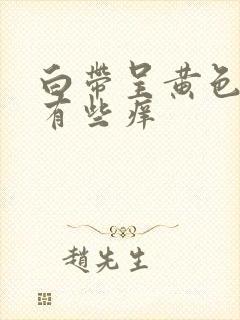 白帶呈黃色
有些痒
趙先生